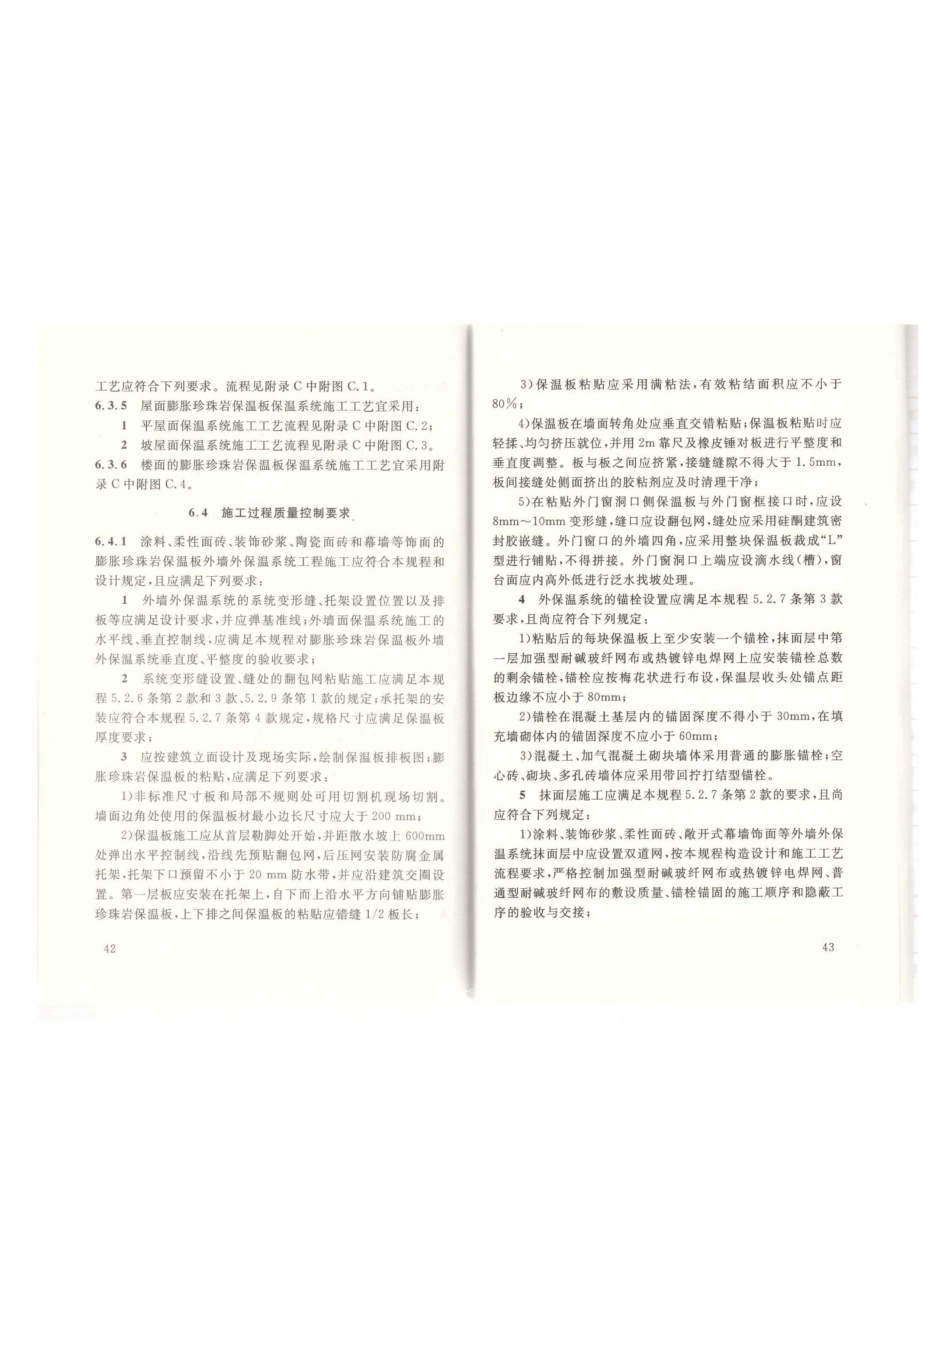 工艺应符合下列要求。流程见附录C中附图C.1。
6.3.5 屋面膨胀珍珠岩保温板保温系统施工工艺宜采用:
1 平屋面保温系统施工工艺流程见附录C中附图C.2;
2 坡屋面保温系统施工工艺流程见附录C中附图C.3。
6.3.6 楼面的膨胀珍珠岩保温板保温系统施工工艺宜采用附
录C中附图C.4。
6.4 施工过程质量控制要求
6.4.1 涂料、柔性面砖、装饰砂浆、陶瓷面砖和幕墙等饰面的
膨胀珍珠岩保温板外墙外保温系统工程施工应符合本规程和
设计规定,且应满足下列要求:
1 外墙外保温系统的系统变形缝、托架设置位置以及排
板等应满足设计要求,并应弹基准线;外墙面保温系统施工的
水平线、垂直控制线,应满足本规程对膨胀珍珠岩保温板外墙
外保温系统垂直度、平整度的验收要求;
2 系统变形缝设置、缝处的翻包网粘贴施工应满足本规
程5.2.6条第2款和3款、5.2.9条第1款的规定;承托架的安
装应符合本规程5.2.7条第4款规定,规格尺寸应满足保温板
厚度要求;
3 应按建筑立面设计及现场实际,绘制保温板排板图;膨
胀珍珠岩保温板的粘贴,应满足下列要求:
1)非标准尺寸板和局部不规则处可用切割机现场切割。
墙面边角处使用的保温板材最小边长尺寸应大于200 mm;
2)保温板施工应从首层勒脚处开始,并距散水坡上600mm
处弹出水平控制线,沿线先预贴翻包网,后压网安装防腐金属
托架,托架下口预留不小于20 mm防水带,并应沿建筑交圈设
置。第一层板应安装在托架上,自下而上沿水平方向铺贴膨胀
珍珠岩保温板,上下排之间保温板的粘贴应错缝1/2板长;
42
3)保温板粘贴应采用满粘法,有效粘结面积应不小于
80%;
4)保温板在墙面转角处应垂直交错粘贴;保温板粘贴时应
轻揉、均匀挤压就位,并用2m靠尺及橡皮锤对板进行平整度和
垂直度调整。板与板之间应挤紧,接缝缝隙不得大于1.5mm,
板间接缝处侧面挤出的胶粘剂应及时清理干净;
5)在粘贴外门窗洞口侧保温板与外门窗框接口时,应设
8mm~10mm变形缝,缝口应设翻包网,缝处应采用硅酮建筑密
封胶嵌缝。外门窗口的外墙四角,应采用整块保温板裁成“L”
型进行铺贴,不得拼接。外门窗洞口上端应设滴水线(槽),窗
台面应内高外低进行泛水找坡处理。
4 外保温系统的锚栓设置应满足本规程5.2.7条第3款
要求,且尚应符合下列规定:
1)粘贴后的每块保温板上至少安装一个锚栓,抹面层中第
一层加强型耐碱玻纤网布或热镀锌电焊网上应安装锚栓总数
的剩余锚栓,锚栓应按梅花状进行布设,保温层收头处锚点距
板边缘不应小于80mm;
2)锚栓在混凝土基层内的锚固深度不得小于30mm,在填
充墙砌体内的锚固深度不应小于60mm;
3)混凝土、加气混凝土砌块墙体采用普通的膨胀锚栓;空
心砖、砌块、多孔砖墙体应采用带回拧打结型锚栓。
5 抹面层施工应满足本规程5.2.7条第2款的要求,且尚
应符合下列规定:
1)涂料、装饰砂浆、柔性面砖、敞开式幕墙饰面等外墙外保
温系统抹面层中应设置双道网,按本规程构造设计和施工工艺
流程要求,严格控制加强型耐碱玻纤网布或热镀锌电焊网、普
通型耐碱玻纤网布的敷设质量、锚栓锚固的施工顺序和隐蔽工
序的验收与交接;
43